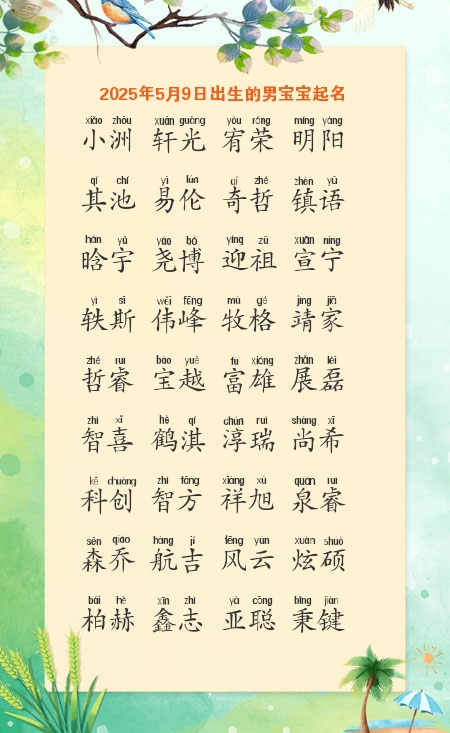 2025年5月9日出生的男宝宝起名
xiǎo zhōu xuān guāng yòu róng míng yáng
小洲 轩光 宥荣 明阳
qí chí yì lún qí zhé zhèn yǔ
其池 易伦 奇哲 镇语
hán yǔ yáo bó yíng zǔ xuān níng
晗宇 尧博 迎祖 宣宁
yì sī wěi fēng mù gé jìng jiā
轶斯 伟峰 牧格 靖家
zhé ruì bǎo yuè fù xióng zhǎn lěi
哲睿 宝越 富雄 展磊
zhì xǐ hè qí chún ruì shàng xī
智喜 鹤淇 淳瑞 尚希
kē chuàng zhì fāng xiáng xù quán ruì
科创 智方 祥旭 泉睿
sēn qiáo háng jí fēng yún xuàn shuò
森乔 航吉 风云 炫硕
bǎi hè xīn zhì yà cōng bǐng jiàn
柏赫 鑫志 亚聪 秉键